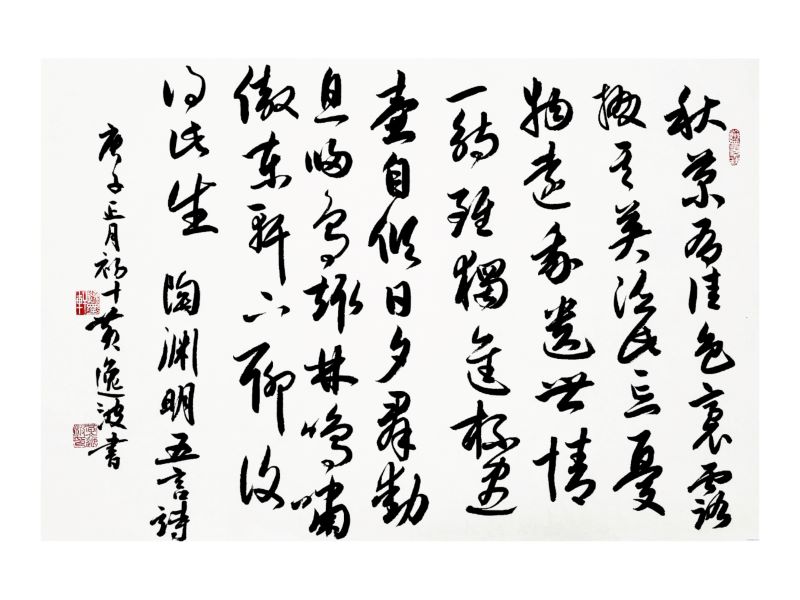 秋菊有佳色裛露
掇其英泛此忘憂
物遠我遺世情
一觴雖獨進杯盡
壺自傾日夕羣動
息歸鳥趨林鳴嘯
傲東軒下聊復
得此生 陶渊明五言詩
庚子正月初十黄逸波書